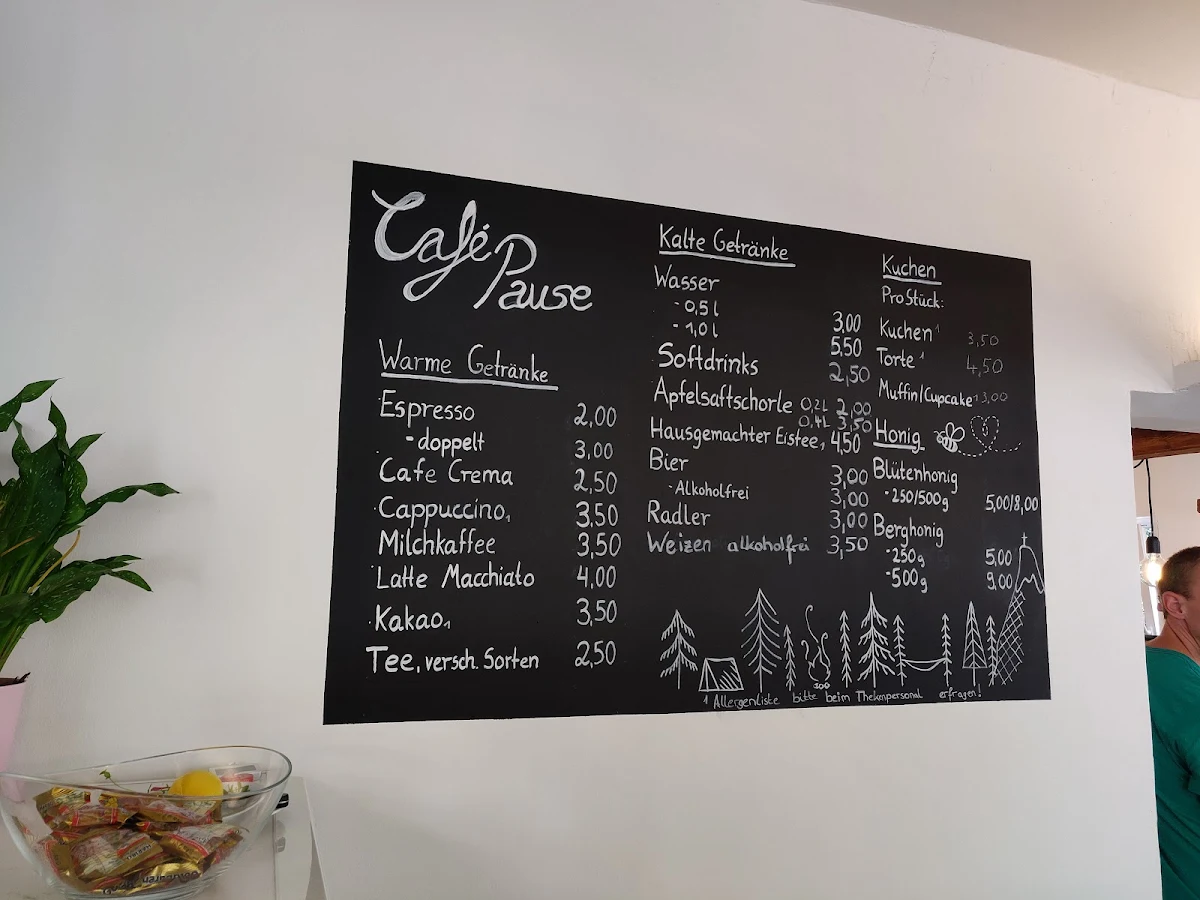 Café
Pause
Warme Getränke
Espresso 2,00
- doppelt 3,00
Cafe Crema 2,50
Cappuccino₁ 3,50
Milchkaffee 3,50
Latte Macchiato 4,00
Kakao₁ 3,50
Tee, versch. Sorten 2,50
Kalte Getränke
Wasser
- 0,5 l 3,00
- 1,0 l 5,50
Softdrinks 2,50
Apfelsaftschorle 0,2L 2,00
0,4L 3,50
Hausgemachter Eistee₁ 4,50
Bier 3,00
- Alkoholfrei 3,00
Radler 3,00
Weizen alkoholfrei 3,50
Kuchen
Pro Stück:
Kuchen¹ 3,50
Torte¹ 4,50
Muffin/Cupcake¹ 3,00
Honig
Blütenhonig
- 250/500g 5,00/8,00
Berghonig
- 250g 5,00
- 500g 9,00
¹ Allergenliste bitte beim Thekenpersonal erfragen!